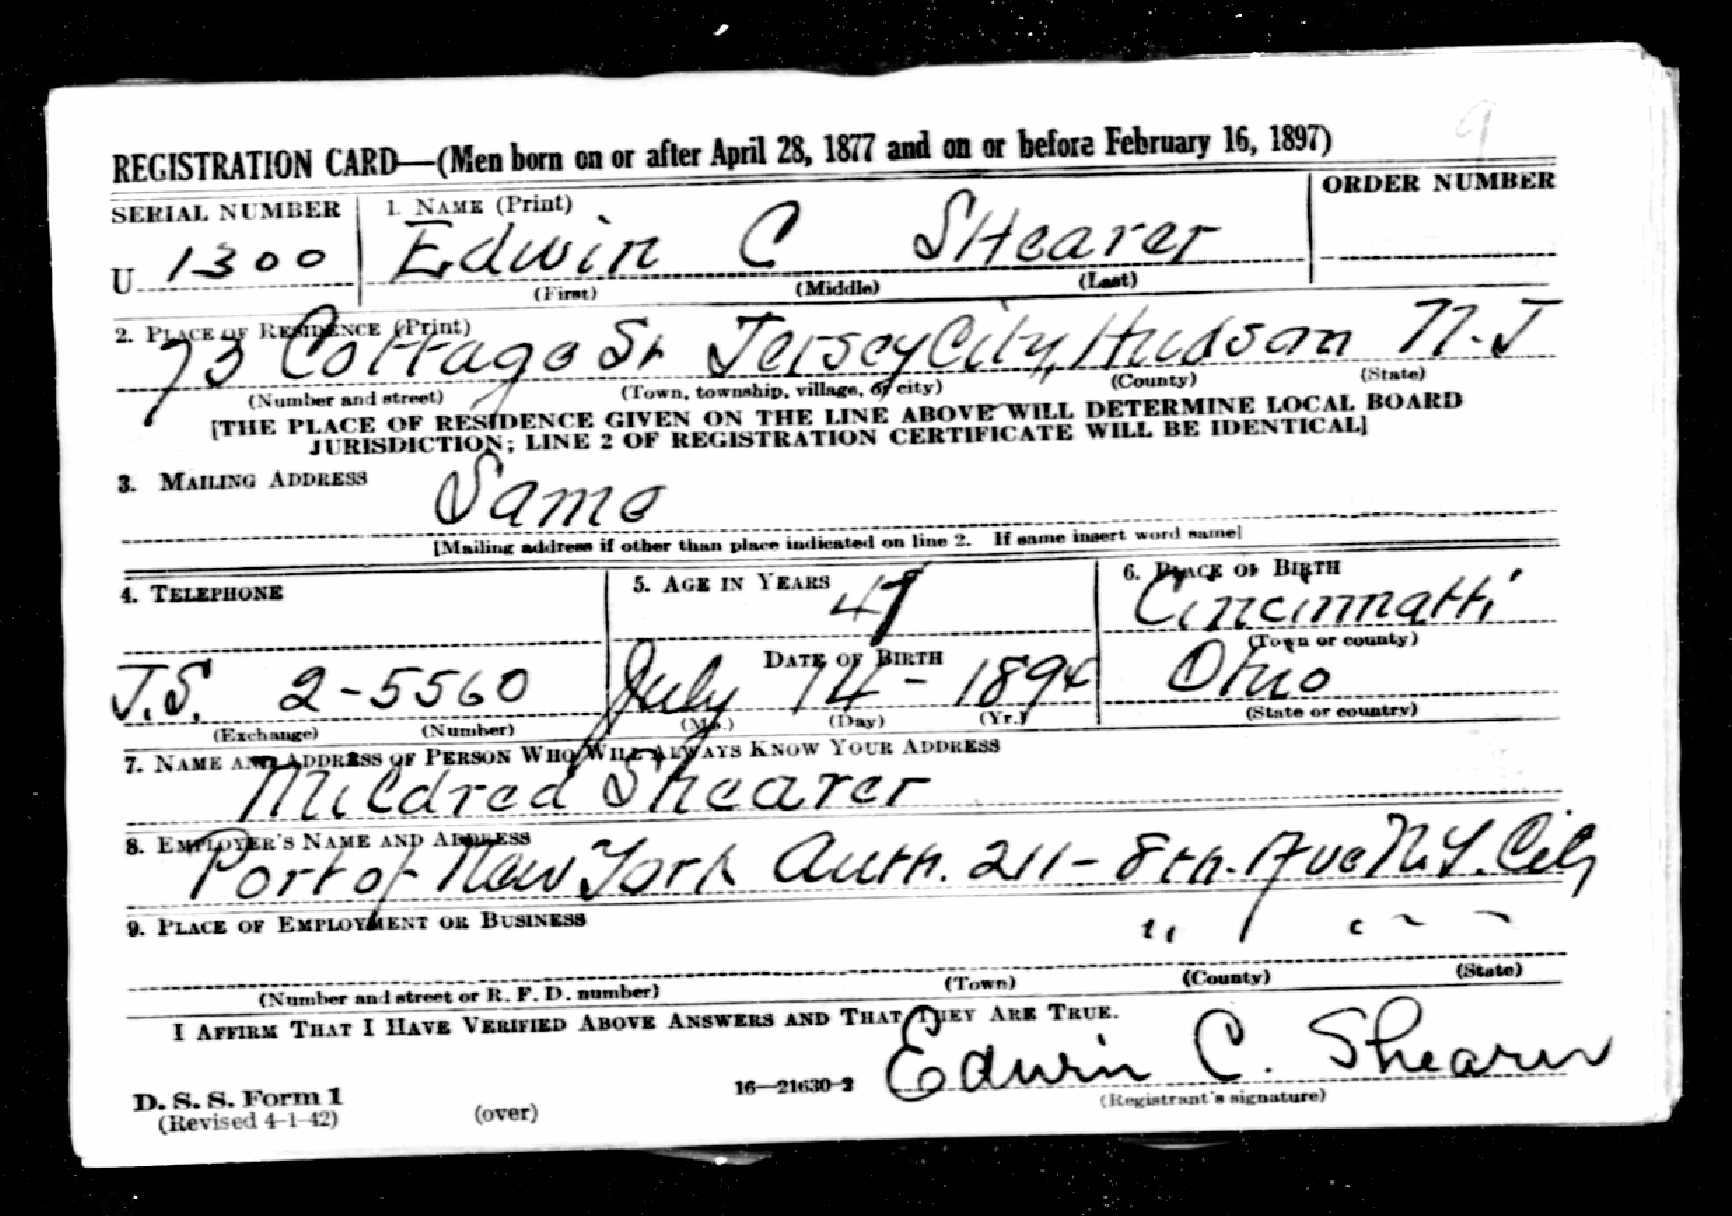 9
REGISTRATION CARD—(Men born on or after April 28, 1877 and on or before February 16, 1897)
SERIAL NUMBER
1. NAME (Print)
ORDER NUMBER
U 1300
Edwin C SHearer
(First) (Middle) (Last)
2. PLACE OF RESIDENCE (Print)
73 Cottage St Jersey City, Hudson N.J
(Number and street) (Town, township, village, or city) (County) (State)
[THE PLACE OF RESIDENCE GIVEN ON THE LINE ABOVE WILL DETERMINE LOCAL BOARD
JURISDICTION; LINE 2 OF REGISTRATION CERTIFICATE WILL BE IDENTICAL]
3. MAILING ADDRESS
Same
[Mailing address if other than place indicated on line 2. If same insert word same]
4. TELEPHONE
J.S. 2-5560
(Exchange) (Number)
5. AGE IN YEARS
47
DATE OF BIRTH
July 14- 1894
(Mo.) (Day) (Yr.)
6. PLACE OF BIRTH
Cincinnatti
(Town or county)
Ohio
(State or country)
7. NAME AND ADDRESS OF PERSON WHO WILL ALWAYS KNOW YOUR ADDRESS
Mildred Shearer
8. EMPLOYER'S NAME AND ADDRESS
Port of New York Auth. 211-8th. Ave N.Y. City
9. PLACE OF EMPLOYMENT OR BUSINESS
(Number and street or R. F. D. number) (Town) (County) (State)
I AFFIRM THAT I HAVE VERIFIED ABOVE ANSWERS AND THAT THEY ARE TRUE.
Edwin C. Shearer
D. S. S. Form 1
(Revised 4-1-42)
(over)
16—21630-2
(Registrant's signature)